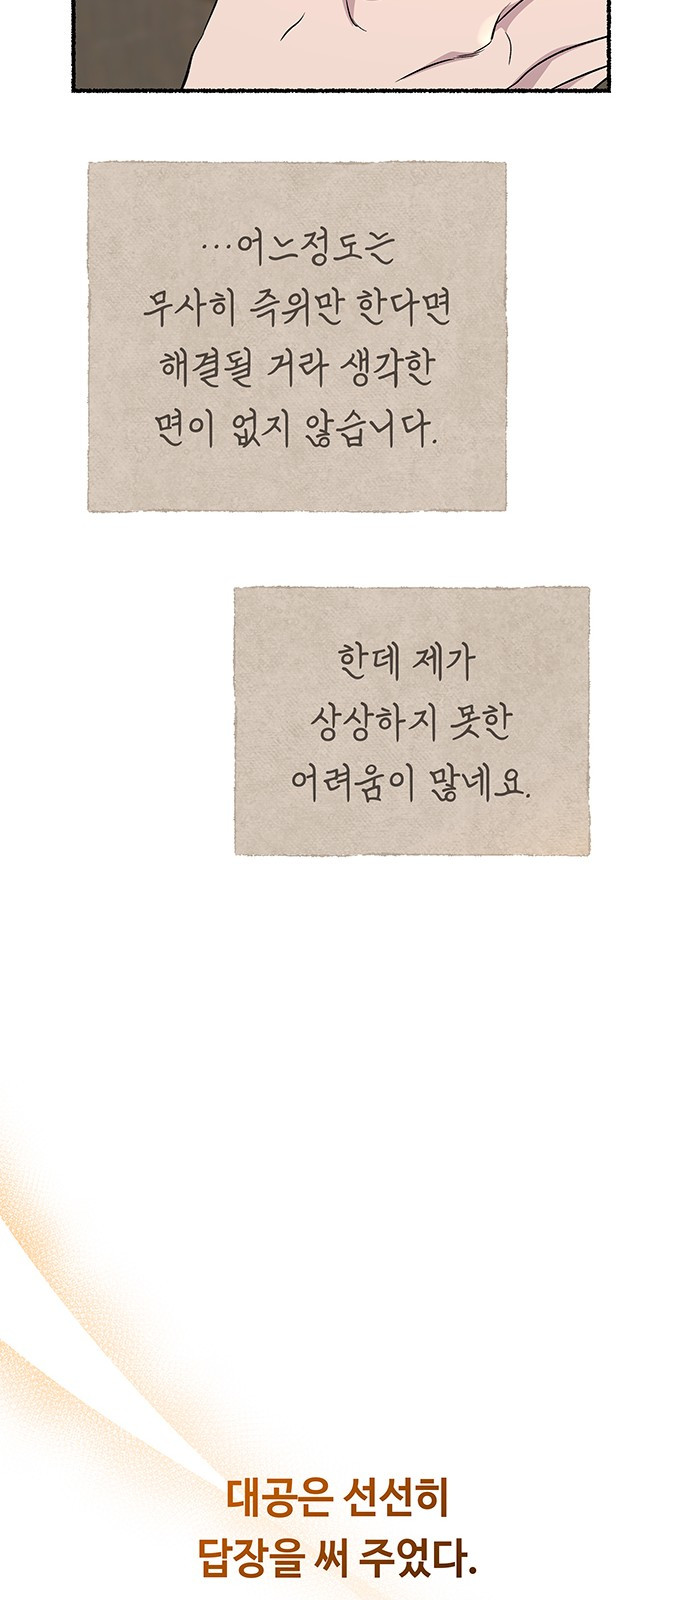 …어느정도는
무사히 즉위만 한다면
해결될 거라 생각한
면이 없지 않습니다.
한데 제가
상상하지 못한
어려움이 많네요.
대공은 선선히
답장을 써 주었다.